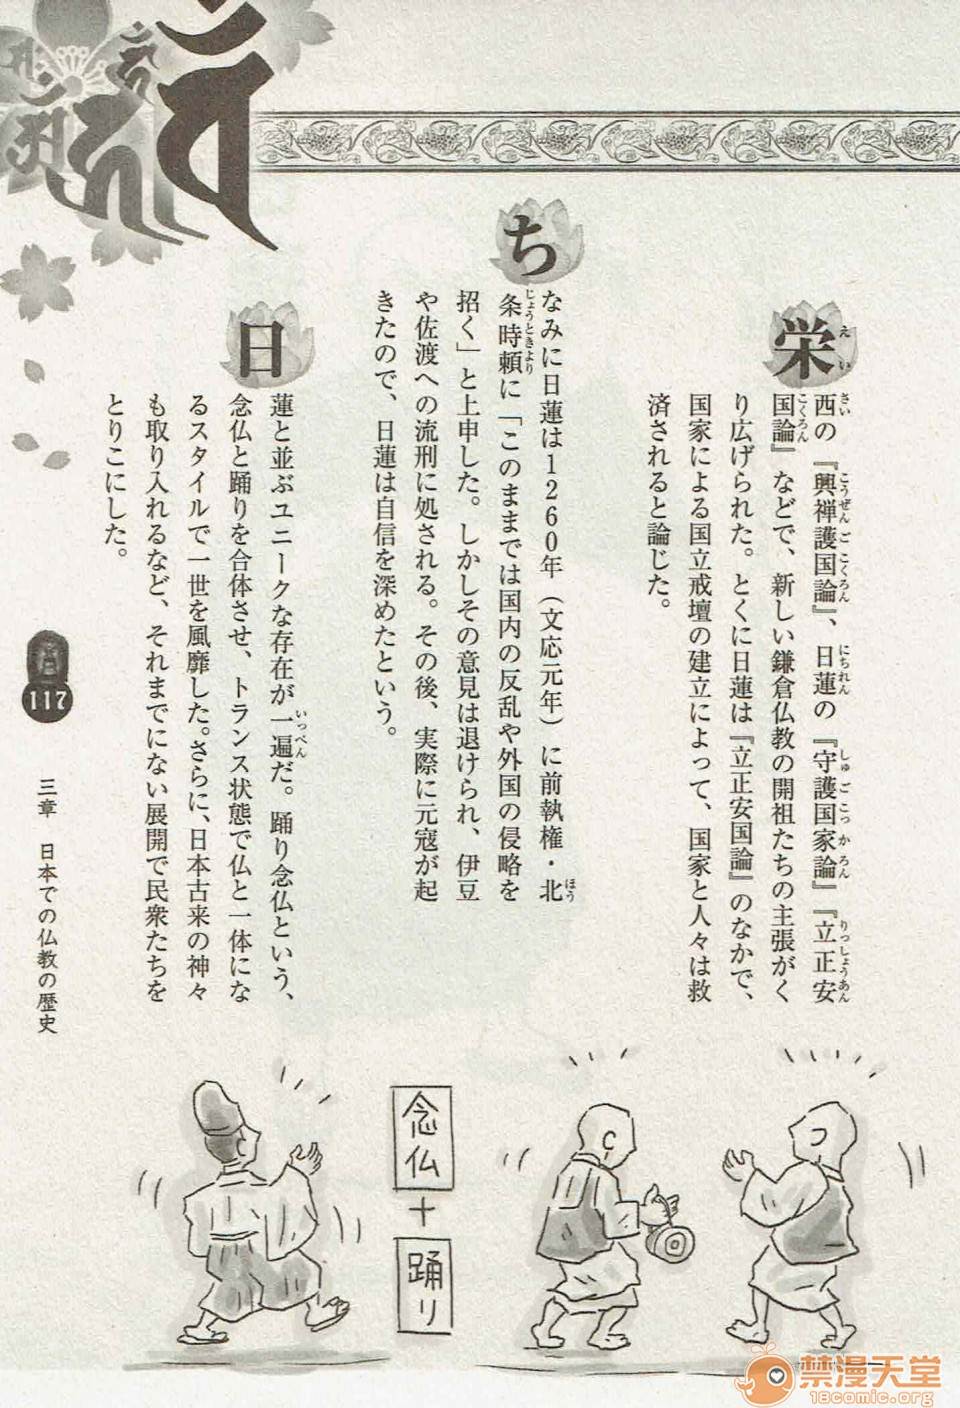 栄西の『興禅護国論』、日蓮の『守護国家論』『立正安
国論』などで、新しい鎌倉仏教の開祖たちの主張がく
り広げられた。とくに日蓮は『立正安国論』のなかで、
国家による国立戒壇の建立によって、国家と人々は救
済されると論じた。
ちなみに日蓮は1260年（文応元年）に前執権・北
条時頼に「このままでは国内の反乱や外国の侵略を
招く」と上申した。しかしその意見は退けられ、伊豆
や佐渡への流刑に処される。その後、実際に元寇が起
きたので、日蓮は自信を深めたという。
日蓮と並ぶユニークな存在が一遍だ。踊り念仏という、
念仏と踊りを合体させ、トランス状態で仏と一体にな
るスタイルで一世を風靡した。さらに、日本古来の神々
も取り入れるなど、それまでにない展開で民衆たちを
とりこにした。
念仏
+
踊り
117
三章 日本での仏教の歴史
禁漫天堂
18comic.org